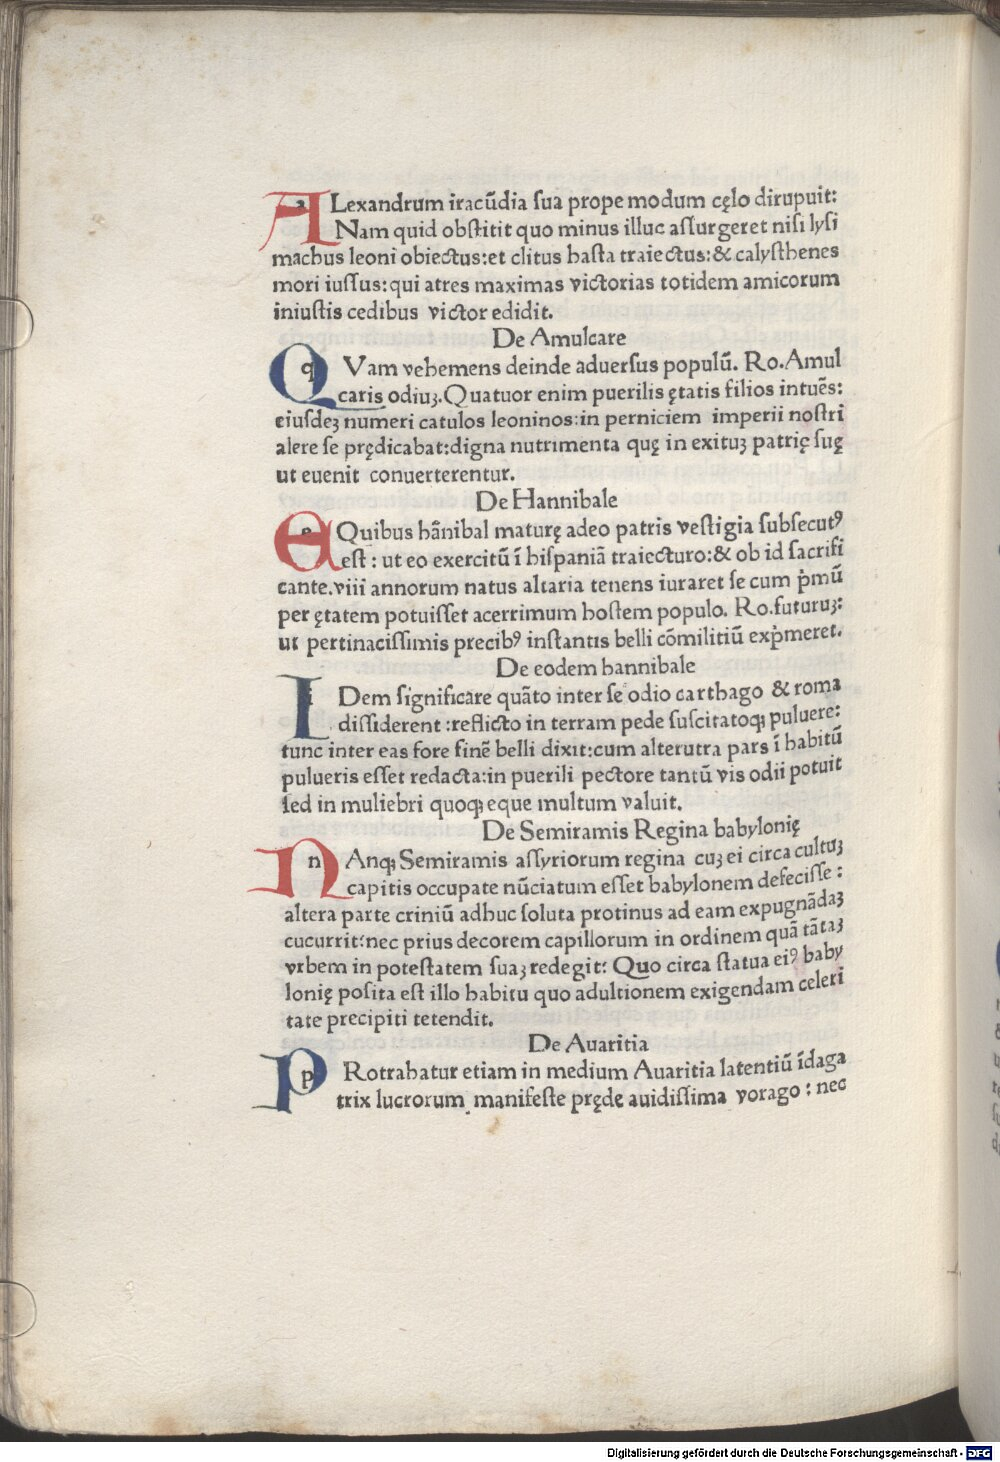 ALexandrum iracūdia ſua prope modum cęlo dirupuit:
Nam quid obſtitit quo minus illuc aſſurgeret niſi lyſi
machus leoni obiectus:et clitus haſta traiectus:& calyſthenes
mori iuſſus:qui atres maximas victorias totidem amicorum
iniuſtis cedibus victor edidit.
De Amulcare
QVam vehemens deinde aduerſus populū. Ro.Amul
caris odiuꝫ.Quatuor enim puerilis ętatis filios intuēs:
eiuſdeꝫ numeri catulos leoninos:in perniciem imperii noſtri
alere ſe prędicabat:digna nutrimenta quę in exituꝫ patrię ſuę
ut euenit conuerterentur.
De Hannibale
EQuibus hānibal maturę adeo patris veſtigia ſubſecutꝰ
eſt : ut eo exercitū ī hiſpaniā traiecturo:& ob id ſacrifi
cante.viii annorum natus altaria tenens iuraret ſe cum p̍mū
per ętatem potuiſſet acerrimum hoſtem populo. Ro.futuruꝫ:
ut pertinaciſſimis precibꝰ inſtantis belli cōmilitiū exp̍meret.
De eodem hannibale
IDem ſignificare quāto inter ſe odio carthago & roma
diſſiderent :reflicto in terram pede ſuſcitatoqꝫ puluere:
tunc inter eas fore finē belli dixit:cum alterutra pars ī habitū
pulueris eſſet redacta:in puerili pectore tantū vis odii potuit
ſed in muliebri quoqꝫ eque multum valuit.
De Semiramis Regina babylonię
NAnqꝫ Semiramis aſſyriorum regina cuꝫ ei circa cultuꝫ
capitis occupate nūciatum eſſet babylonem defeciſſe :
altera parte criniū adhuc ſoluta protinus ad eam expugnādaꝫ
cucurrit:nec prius decorem capillorum in ordinem quā tātaꝫ
vrbem in poteſtatem ſuaꝫ redegit: Quo circa ſtatua eiꝰ baby
lonię poſita eſt illo habitu quo adultionem exigendam celeri
tate precipiti tetendit.
De Avaritia
PRotrahatur etiam in medium Avaritia latentiū īdaga
trix lucrorum manifeſte pręde auidiſſima vorago : nec
Digitalisierung gefördert durch die Deutsche Forschungsgemeinschaft - DFG